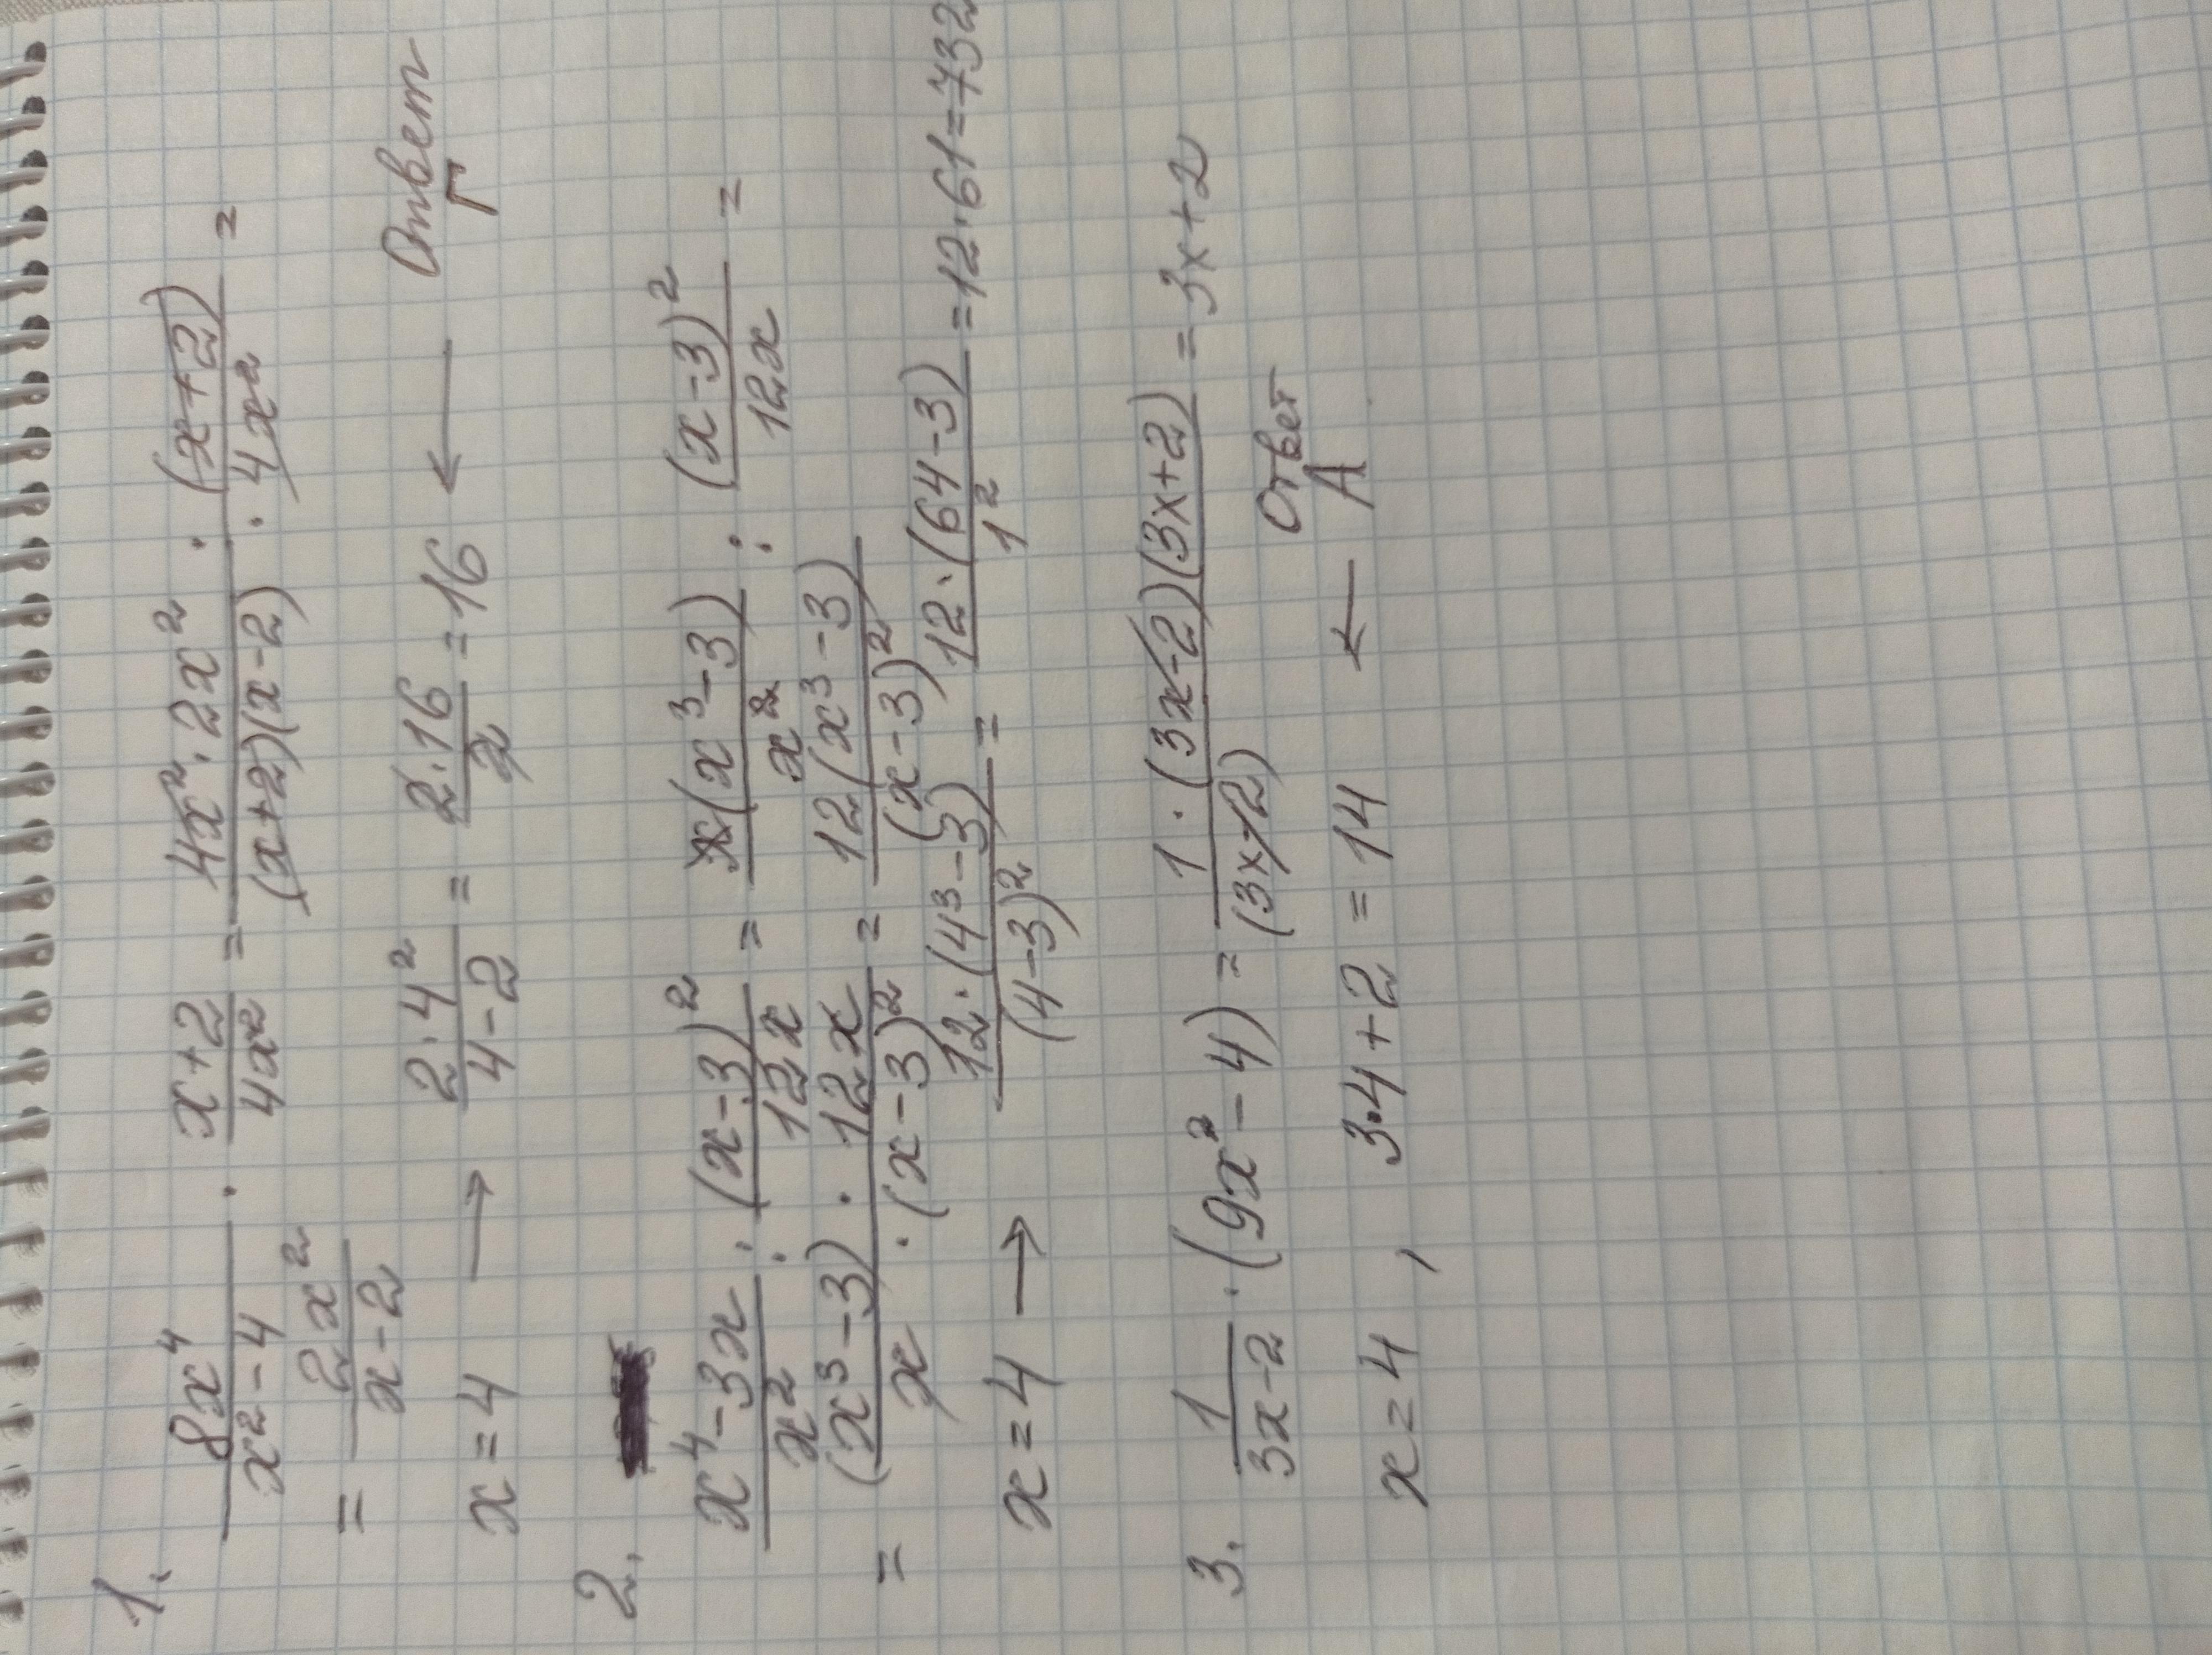 1.
8x⁴/(x²-4) · (x+2)/(4x²) = (4x²·2x²)/((x+2)(x-2)) · (x+2)/(4x²) =
= 2x²/(x-2)
x=4 → (2·4²)/(4-2) = (2·16)/2 = 16 ← Ответ Г
2.
(x⁴-3x)/x² : (x-3)²/(12x) = x(x³-3)/x² : (x-3)²/(12x) =
= ((x³-3) · 12x)/(x · (x-3)²) = 12(x³-3)/(x-3)²
x=4 → 12·(4³-3)/(4-3)² = 12·(64-3)/1² = 12·61=732
3. 1/(3x-2) · (9x²-4) = 1·(3x-2)(3x+2)/(3x-2) = 3x+2
x=4, 3·4+2=14 ← Ответ А